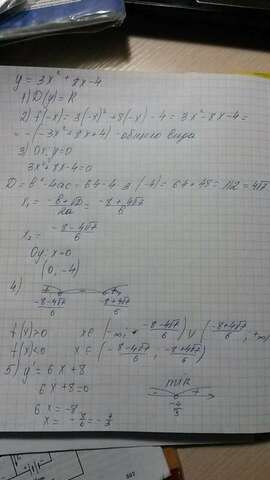 y = 3x² + 8x - 4
1) D(y) = R
2) f(-x) = 3(-x)² + 8(-x) - 4 = 3x² - 8x - 4 =
= -(-3x² + 8x + 4) - общего вида
3) Ox: y=0
3x² + 8x - 4 = 0
D = b² - 4ac = 64 - 4·3·(-4) = 64 + 48 = 112 = 4√7
x₁ = (-b + √D)/2a = (-8 + 4√7)/6
x₂ = (-8 - 4√7)/6
Oy: x=0
(0, -4)
4)
(-8-4√7)/6 (-8+4√7)/6
f(x)>0 x∈(-∞; (-8-4√7)/6) ∪ ((-8+4√7)/6; +∞)
f(x)<0 x∈((-8-4√7)/6, (-8+4√7)/6)
5) y' = 6x + 8
6x + 8 = 0
6x = -8
x = -8/6 = -4/3
min
-4/3